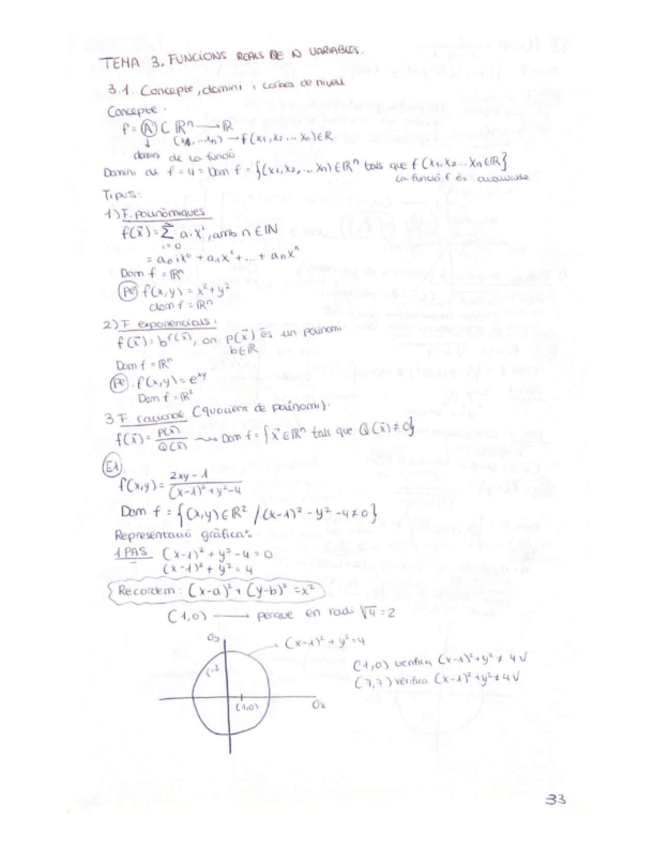 TEMA 3. FUNCIONS REALS DE N VARIABLES.
3.1. Concepte, domini i corbes de nivell
Concepte:
f = A ⊂ ℝⁿ → ℝ
(x₁, ... xₙ) → f(x₁, x₂ ... xₙ) ∈ ℝ
domini de la funció
Domini de f = Dom f = {(x₁, x₂, ... xₙ) ∈ ℝⁿ tals que f(x₁, x₂ ... xₙ ∈ ℝ}
la funció f és avaluable
Tipus:
1) F. polinòmiques
f(x̄) = Σ aᵢ xⁱ, amb n ∈ ℕ
i = 0
= a₀x⁰ + a₁x¹ + ... + aₙxⁿ
Dom f = ℝⁿ
pe f(x,y) = x² + y²
dom f = ℝⁿ
2) F. exponencials:
f(x̄) = b^P(x̄), on p(x̄) és un polinomi
b ∈ ℝ
Dom f = ℝⁿ
pe. f(x,y) = e^xy
Dom f = ℝ²
3 F. racional (quocient de polinomi).
f(x̄) = P(x̄)/Q(x̄) ⇝ Dom f = {x̄ ∈ ℝⁿ tals que Q(x̄) ≠ 0}
E1
f(x,y) = 2xy - 1 / (x-1)² + y² - 4
Dom f = {(x,y) ∈ ℝ² / (x-1)² - y² - 4 ≠ 0}
Representació gràfica:
1 PAS: (x-1)² + y² - 4 = 0
(x-1)² + y² = 4
Recordem: (x-a)² + (y-b)² = x²
(1,0) → perque en radi √4 = 2
Oy
(x-1)² + y² = 4
r=2
(1,0) verifica (x-1)² + y² ≠ 4 √
(7,7) verifica (x-1)² + y² ≠ 4 √
(1,0)
Ox
33